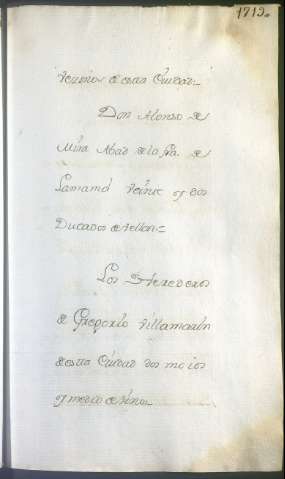 1719.
vecino de esta Ciudad=
Don Alonso de
Mira Abad de la fra. de
Lamamd veinte y dos
Ducados de vellon=
Los Herederos
de Gregorio Villamarin
de esta Ciudad dos mo ios
y medio de vino=